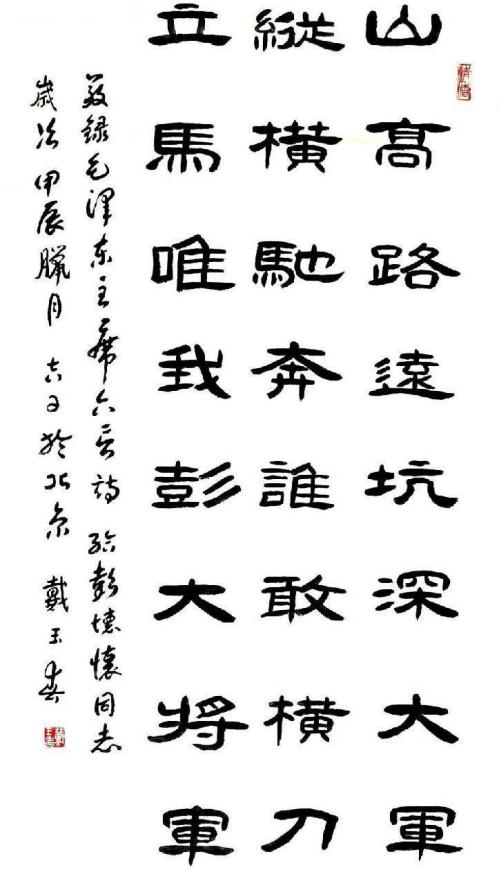 山髙路遠坑深大軍
縱横馳奔誰敢横刀
立馬唯我彭大將軍
録毛泽东主席六言诗给彭德懷同志
歲次甲辰臘月吉日於北京 戴玉春